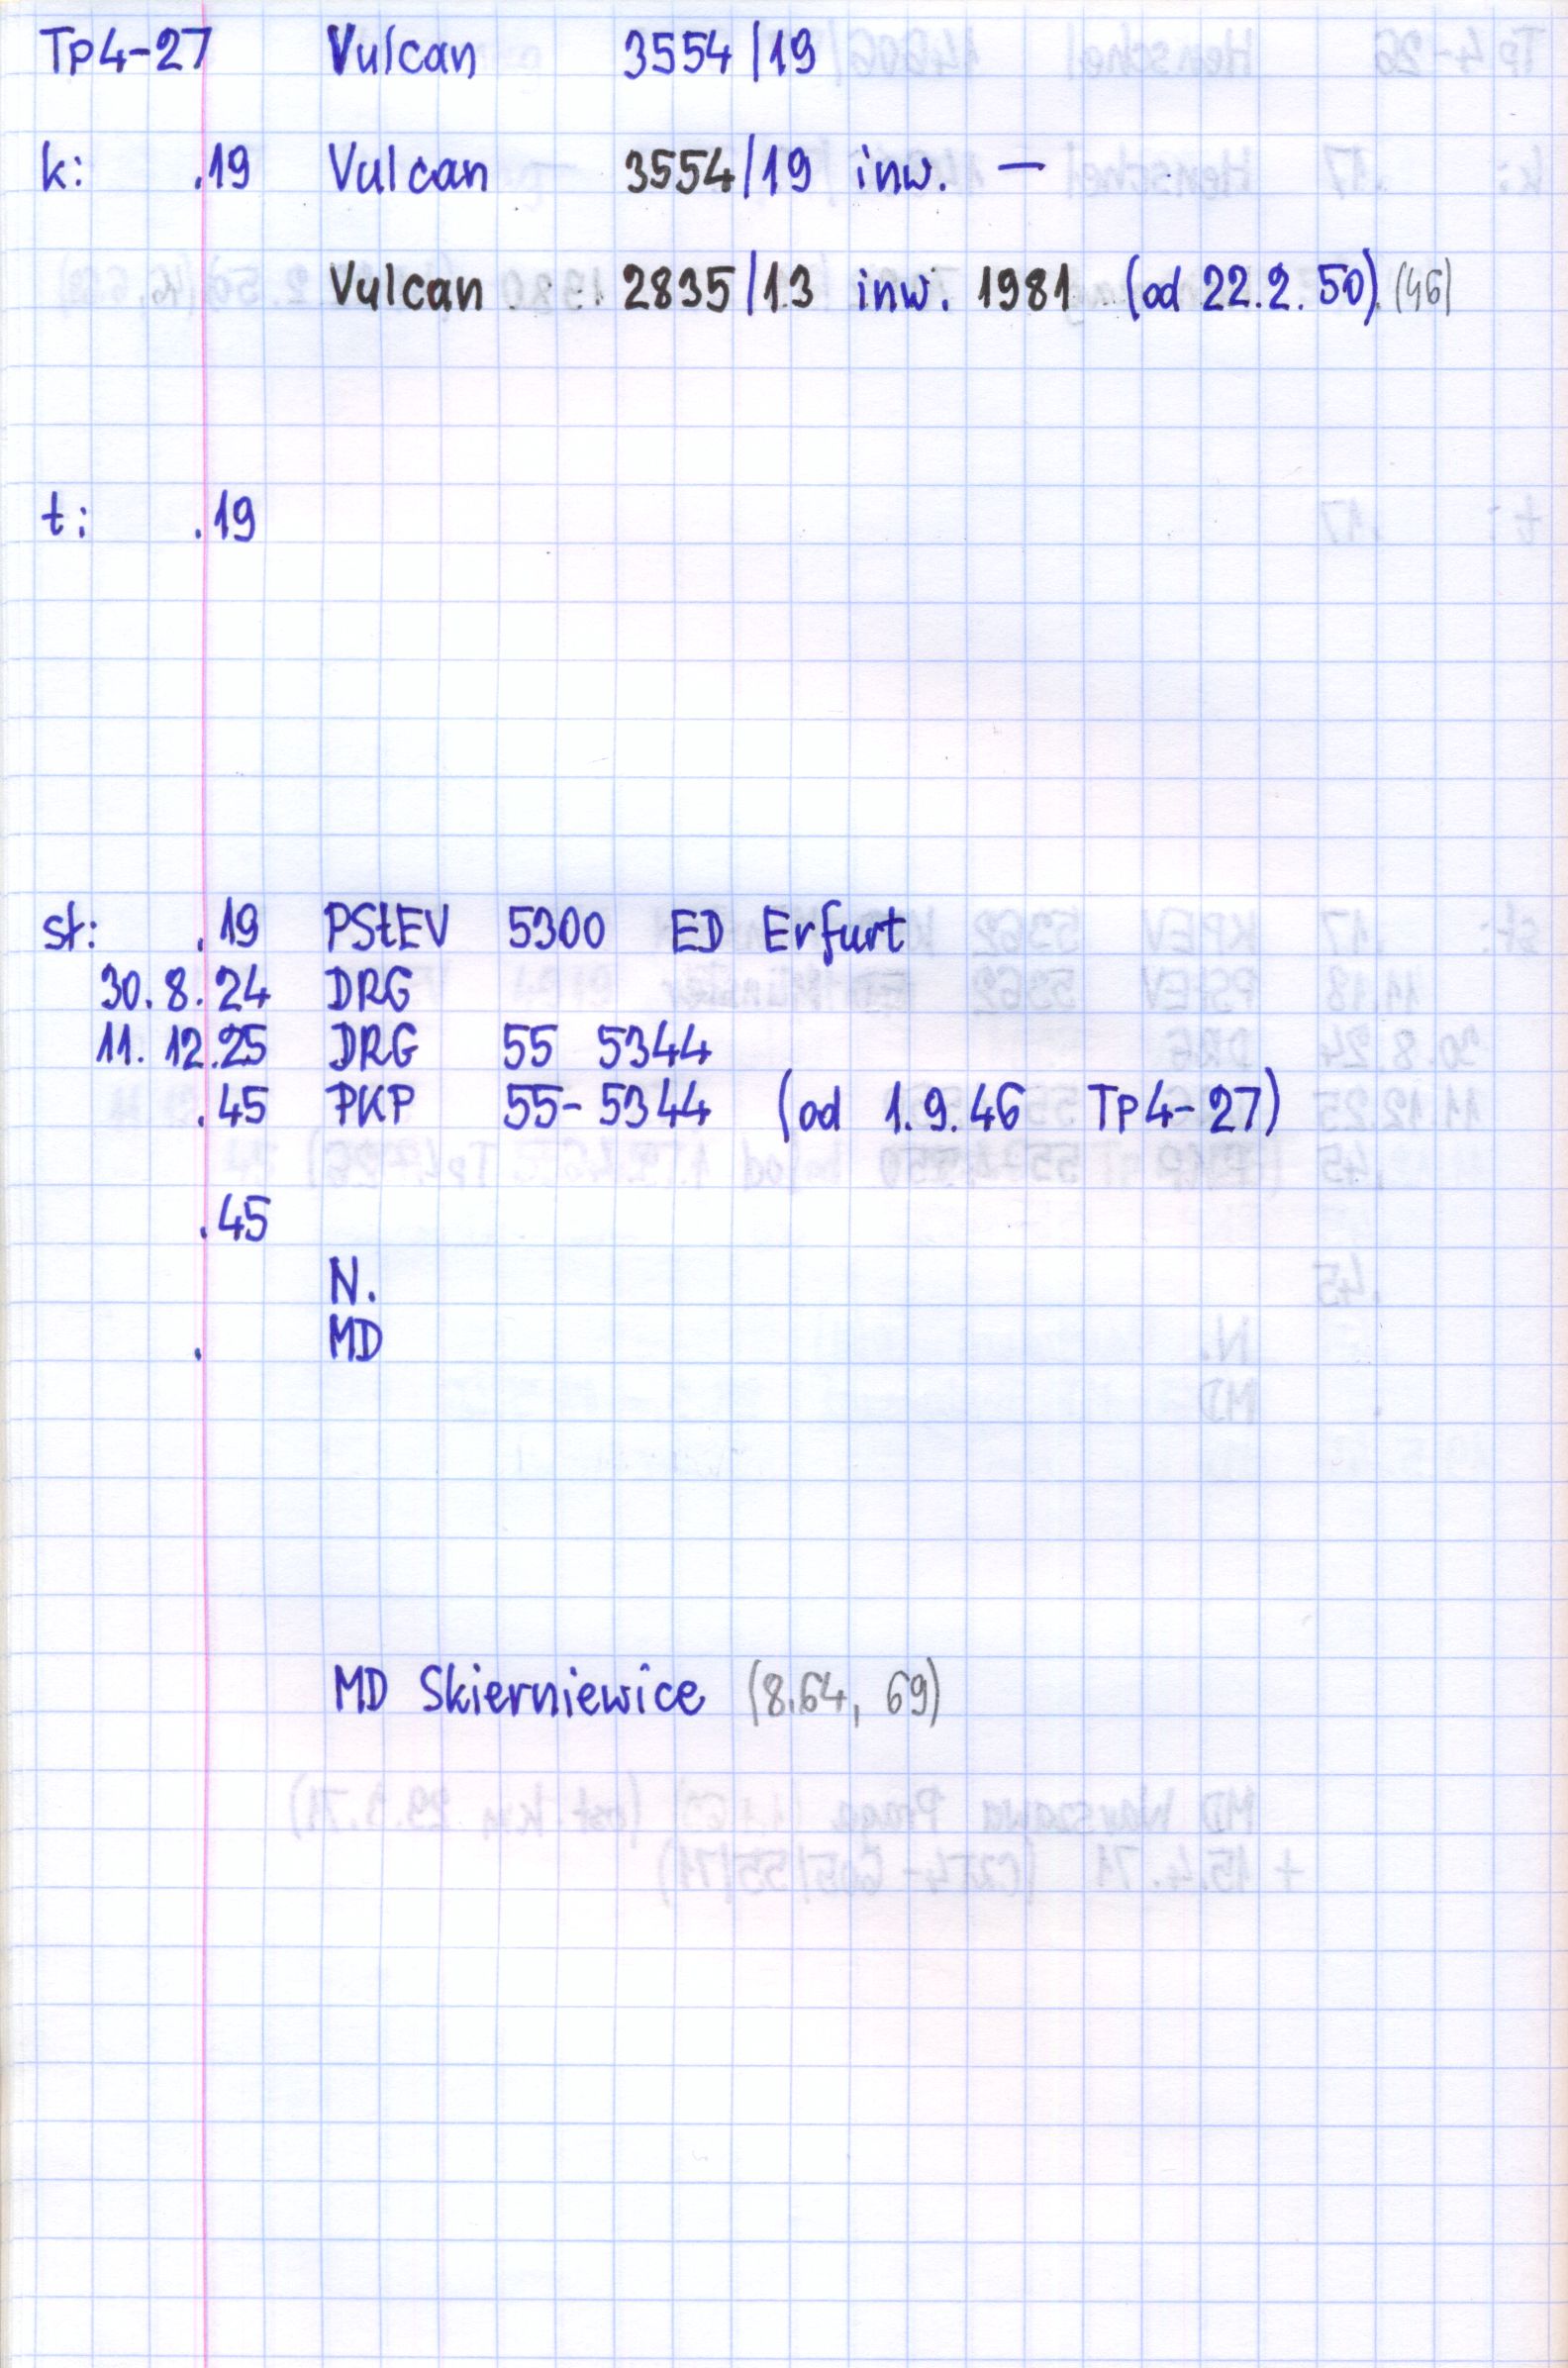 Tp4-27 Vulcan 3554/19
k: .19 Vulcan 3554/19 inw. —
Vulcan 2835/13 inw. 1981 (od 22.2.50) (46)
t: .19
st: .19 PStEV 5300 ED Erfurt
30.8.24 DRG
11.12.25 DRG 55 5344
.45 PKP 55-5344 (od 1.9.46 Tp4-27)
.45
N.
. MD
MD Skierniewice (8.64, 69)